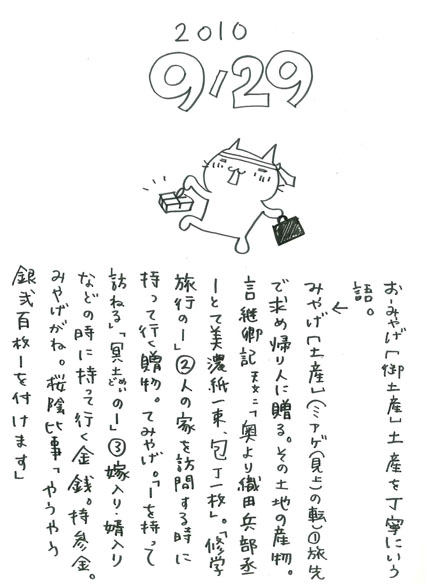 2010
9/29
お‐みやげ「御土産」土産を丁寧にいう
語。
←
みやげ「土産」(ミアゲ(見上)の転)①旅先
で求め帰り人に贈る。その土地の産物。
言継卿記天文二「奥より織田兵部丞
ーとて美濃紙一束、包丁一枚」。「修学
旅行のー」②人の家を訪問する時に
持って行く贈物。てみやげ。「ーを持って
訪ねる」「冥土めいどのー」③嫁入り・婿入り
などの時に持って行く金銭。持参金。
みやげがね。桜陰比事「やうやう
銀弐百枚ーを付けます」